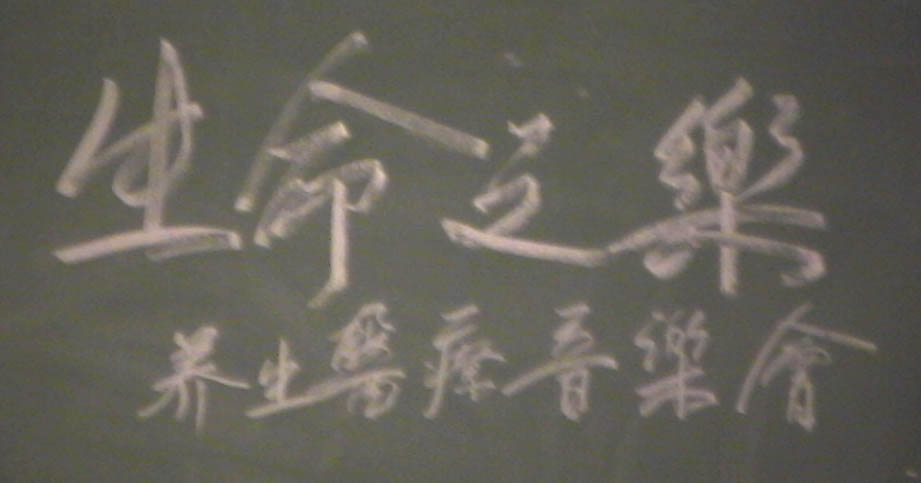 生命之樂
养生醫療音樂會